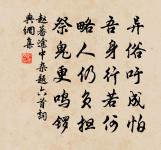 异俗吁成怕
吾身行若何
略人仍负担
祭鬼更鸣锣
赵蕃途中杂题六首词
典网集